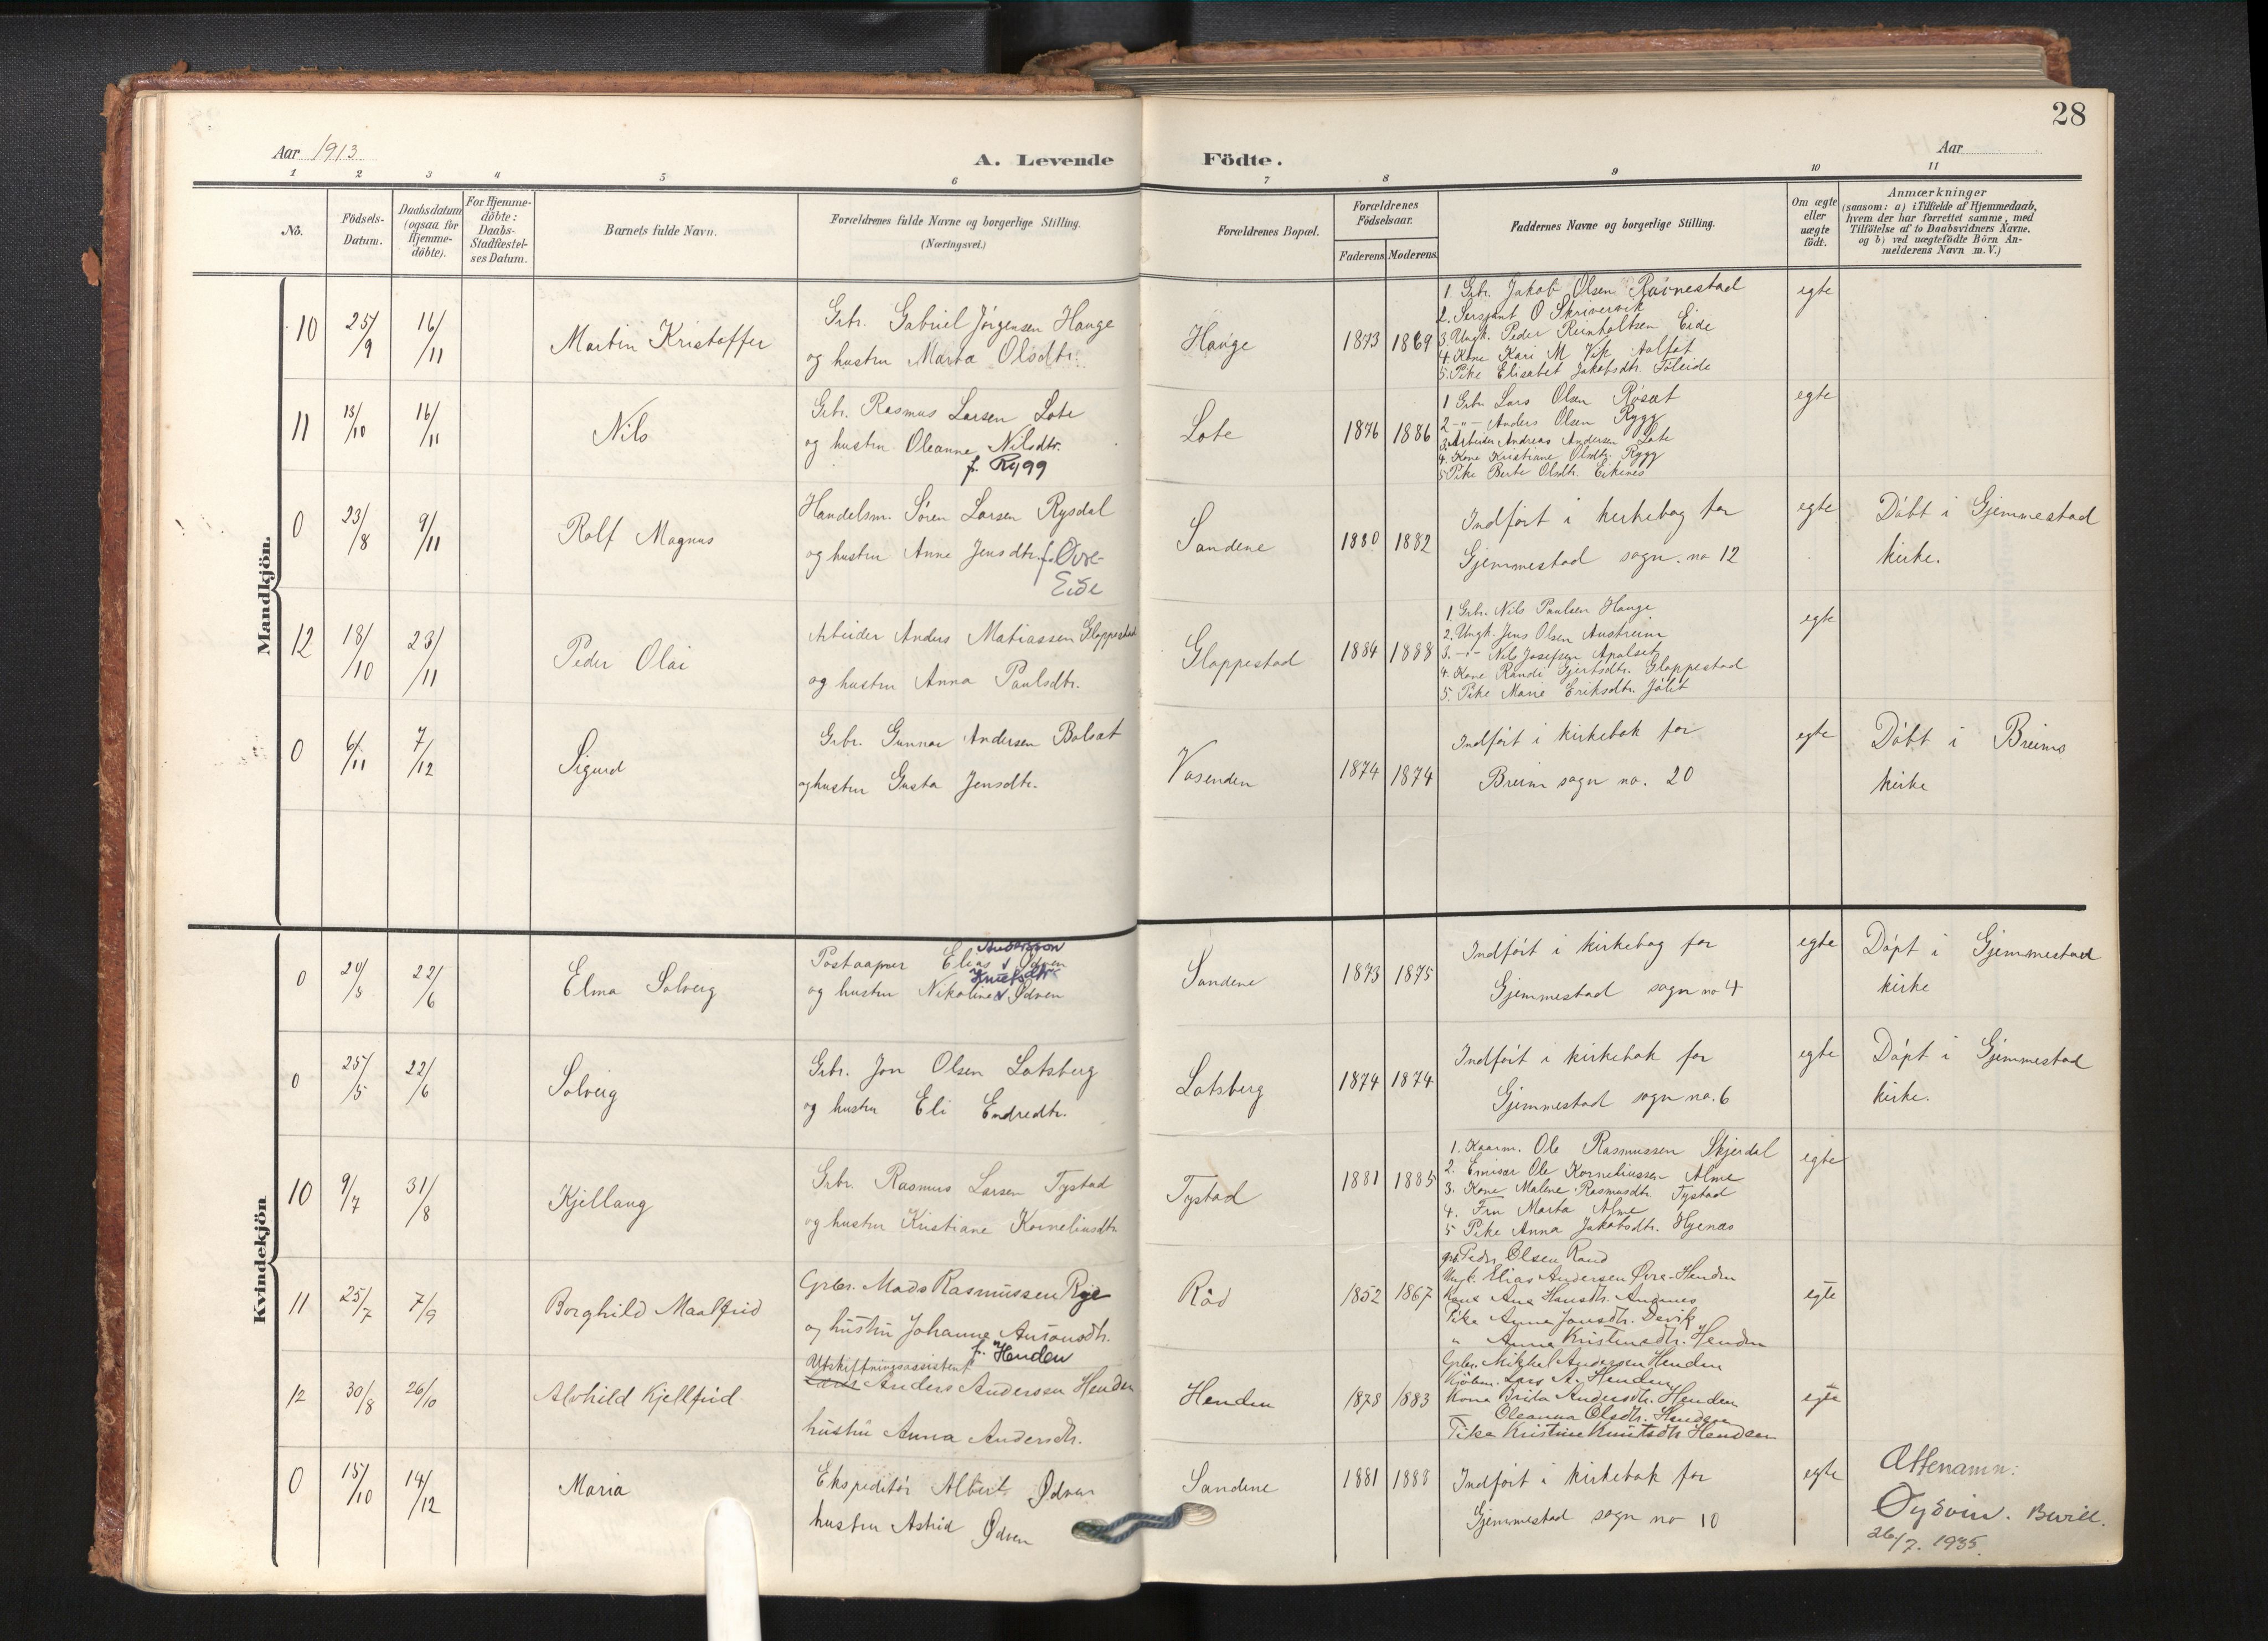 28
Aar 1913
A. Levende Födte.
Aar
1 2 3 4 5 6 7 8 9 10 11
No.
Födsels-
Datum.
Daabsdatum
(ogsaa for
Hjemme-
döbte).
For Hjemme-
döbte:
Daabs-
Stadfæstel-
ses Datum.
Barnets fulde Navn.
Forældrenes fulde Navne og borgerlige Stilling.
(Næringsvei.)
Forældrenes Bopæl.
Forældrenes
Födselsaar.
Faderens Moderens
Faddernes Navne og borgerlige Stilling.
Om ægte
eller
uægte
födt.
Anmærkninger
(saasom: a) i Tilfælde af Hjemmedaab,
hvem der har forrettet samme, med
Tilföielse af to Daabsvidners Navne,
og b) ved uægtefödte Börn An-
melderens Navn m. V.)
Mandkjön.
10
25/9
16/11
Martin Kristoffer
Grbr. Gabriel Jørgensen Hauge
og hustru Marta Olsdtr.
Hauge
1873 1869
1 Grbr. Jakob Olsen Røinestad
2. Sersjant O Skrivervik
3. Ungk. Peder Reinholtsen Eide
4. Kone Kari M Vik Aalfot
5. Pike Elisabet Jakobsdtr. Føleide
egte
11
13/10
16/11
Nils
Grbr. Rasmus Larsen Lote
og hustru Oleanne Nilsdtr.
f. Rygg
Lote
1876 1886
1 Grbr. Lars Olsen Røsæt
2 -"- Anders Olsen Rygg
3. Arbeider Andreas Andersen Lote
4. Kone Kristiane Olsdtr. Rygg
5 Pike Berte Olsdtr. Eikenes
egte
0
23/8
9/11
Rolf Magnus
Handelsm. Søren Larsen Rysdal
og hustru Anne Jensdtr. f. Øvre-
Eide
Sandene
1880 1882
Indført i kirkebog for
Gjemmestad sogn. no 12
egte
Døbt i Gjemmestad
kirke.
12
18/10
23/11
Peder Olai
Arbeider Anders Matiassen Gloppestad
og hustru Anna Paulsdtr.
Gloppestad
1884 1888
1 Grbr. Nils Paulsen Hauge
2. Ungk. Jens Olsen Austreim
3. -"- Nils Josefsen Apalset
4. Kone Randi Gjertsdtr. Gloppestad
5. Pike Marie Eriksdtr. Jølet
egte
0
6/11
7/12
Sigurd
Grbr. Gunnar Andersen Bolsæt
og hustru Gusta Jensdtr.
Vasenden
1874 1874
Indført i kirkebok for
Breim sogn no. 20
egte
Døbt i Breims
kirke
Kvindekjön
0
20/5
22/6
Elma Solveig
Andersson
Postaapner Elias v Ødven
Knutsdtr
og hustru Nikoline v Ødven
Sandene
1873 1875
Indført i kirkebog for
Gjemmestad sogn no 4
egte
Døpt i Gjemmestad
kirke
0
25/5
22/6
Solveig
Grbr. Jon Olsen Lotsberg
og hustru Eli Endredtr.
Lotsberg
1874 1874
Indført i kirkebok for
Gjemmestad sogn no. 6
egte
Døpt i Gjemmestad
kirke.
10
9/7
31/8
Kjellaug
Grbr. Rasmus Larsen Tystad
og hustru Kristiane Korneliusdtr
Tystad
1881 1885
1. Kaarm. Ole Rasmussen Skjerdal
2. Emisær Ole Korneliussen Alme
3. Kone Malene Rasmusdtr. Tystad
4. Fru Marta Alme
5 Pike Anna Jakobsdtr. Hjenæs
egte
11
25/7
7/9
Borghild Maalfrid
Grbr. Mads Rasmussen Rye
og hustru Johanne Antonsdtr.
f. Henden
Rød
1852 1867
grb. Peder Olsen Rand
Ungk. Elias Andersen Øvre-Henden
Kone Ana Hansdtr. Andnes
Pike Anna Jonsdtr. Devik
" Anna Kristensdtr. Henden
egte
12
30/8
26/10
Alvhild Kjellfrid
Utskiftningsassistent
Anders Andersen Henden
hustru Anna Andersdtr.
Henden
1878 1883
Grbr. Mikkel Andersen Henden
Kjøbm. Lars A. Henden
Kone Brita Andersdtr. Henden
Oleanna Olsdtr. Henden
Pike Kristine Knutsdtr Henden
egte
0
15/10
14/12
Maria
Ekspeditør Albert Ødven
hustru Astrid Ødven
Sandene
1881 1888
Indført i kirkebok for
Gjemmestad sogn no 10
egte
Ættenamn:
Øydvin. Bevill.
26/7. 1935.